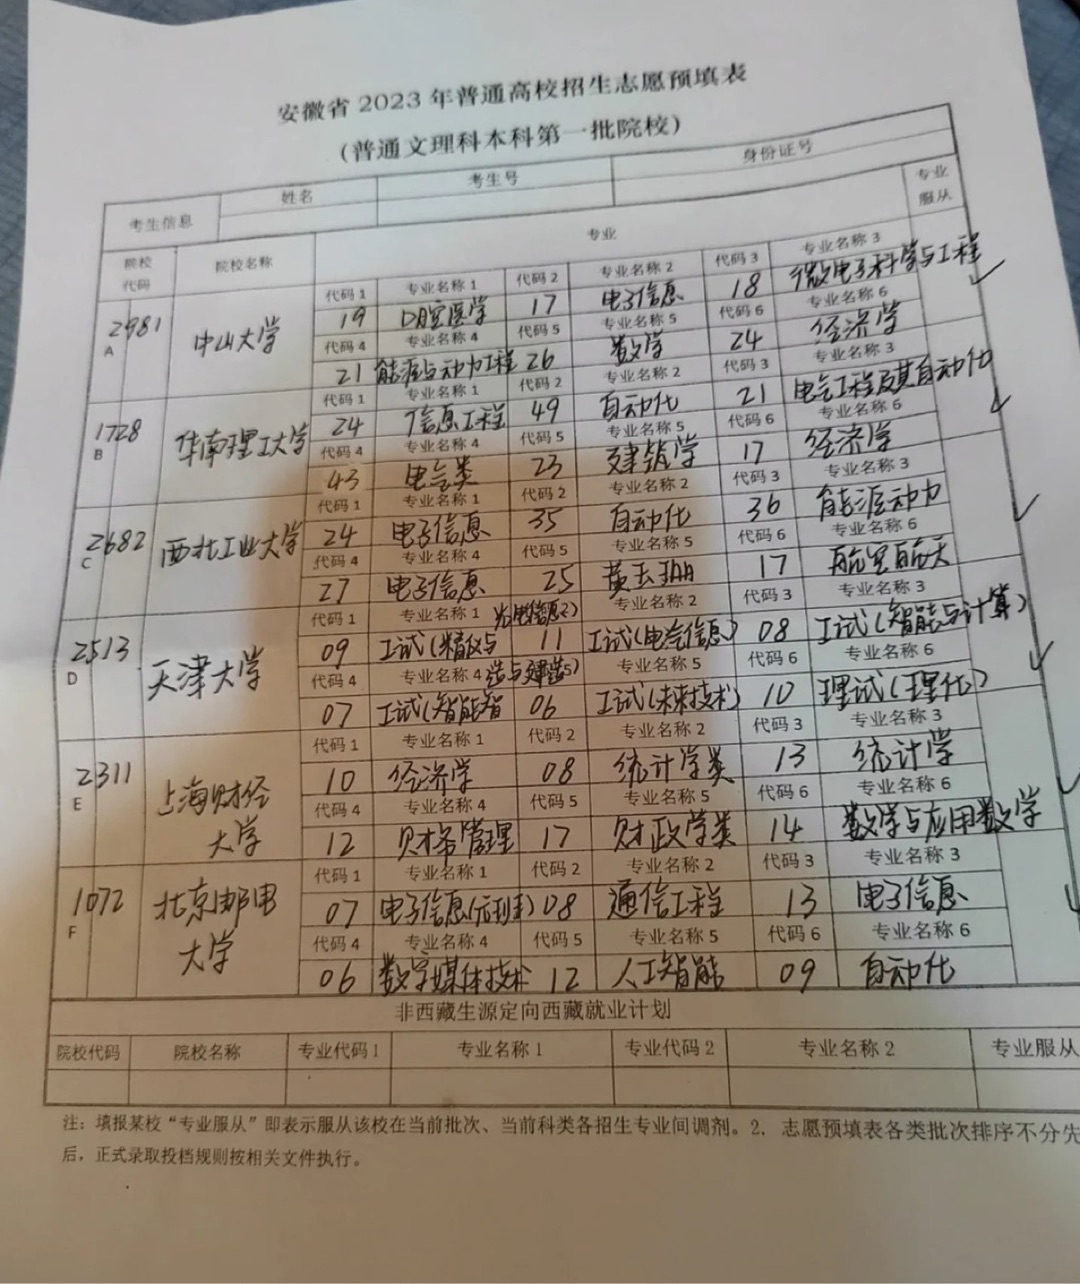 安徽省 2023 年普通高校招生志愿预填表
（普通文理科本科第一批院校）
考生信息 姓名 考生号 身份证号
院校代码 院校名称 专业 专业服从
代码 1 专业名称 1 代码 2 专业名称 2 代码 3 专业名称 3
2981 A 中山大学 19 口腔医学 17 电子信息 18 微电子科学与工程 ✓
代码 4 专业名称 4 代码 5 专业名称 5 代码 6 专业名称 6
21 能源与动力工程 26 数学 24 经济学
代码 1 专业名称 1 代码 2 专业名称 2 代码 3 专业名称 3
1728 B 华南理工大学 24 信息工程 49 自动化 21 电气工程及其自动化 ✓
代码 4 专业名称 4 代码 5 专业名称 5 代码 6 专业名称 6
43 电气类 23 建筑学 17 经济学
代码 1 专业名称 1 代码 2 专业名称 2 代码 3 专业名称 3
2682 C 西北工业大学 24 电子信息 35 自动化 36 能源动力 ✓
代码 4 专业名称 4 代码 5 专业名称 5 代码 6 专业名称 6
27 电子信息 25 黄玉珊 17 航空航天
代码 1 专业名称 1 代码 2 专业名称 2 代码 3 专业名称 3
2513 D 天津大学 09 工试（精仪与光电信息2） 11 工试（电气信息） 08 工试（智能与计算） ✓
代码 4 专业名称 4 代码 5 专业名称 5 代码 6 专业名称 6
07 工试（智能智造与建造5） 06 工试（未来技术） 10 理试（理化）
代码 1 专业名称 1 代码 2 专业名称 2 代码 3 专业名称 3
2311 E 上海财经大学 10 经济学 08 统计学类 13 统计学 ✓
代码 4 专业名称 4 代码 5 专业名称 5 代码 6 专业名称 6
12 财务管理 17 财政学类 14 数学与应用数学
代码 1 专业名称 1 代码 2 专业名称 2 代码 3 专业名称 3
1072 F 北京邮电大学 07 电子信息 08 通信工程 13 电子信息 ✓
代码 4 专业名称 4 代码 5 专业名称 5 代码 6 专业名称 6
06 数字媒体技术 12 人工智能 09 自动化
非西藏生源定向西藏就业计划
院校代码 院校名称 专业代码 1 专业名称 1 专业代码 2 专业名称 2 专业服从
注：填报某校“专业服从”即表示服从该校在当前批次、当前科类各招生专业间调剂。2. 志愿预填表各类批次排序不分先
后，正式录取投档规则按相关文件执行。